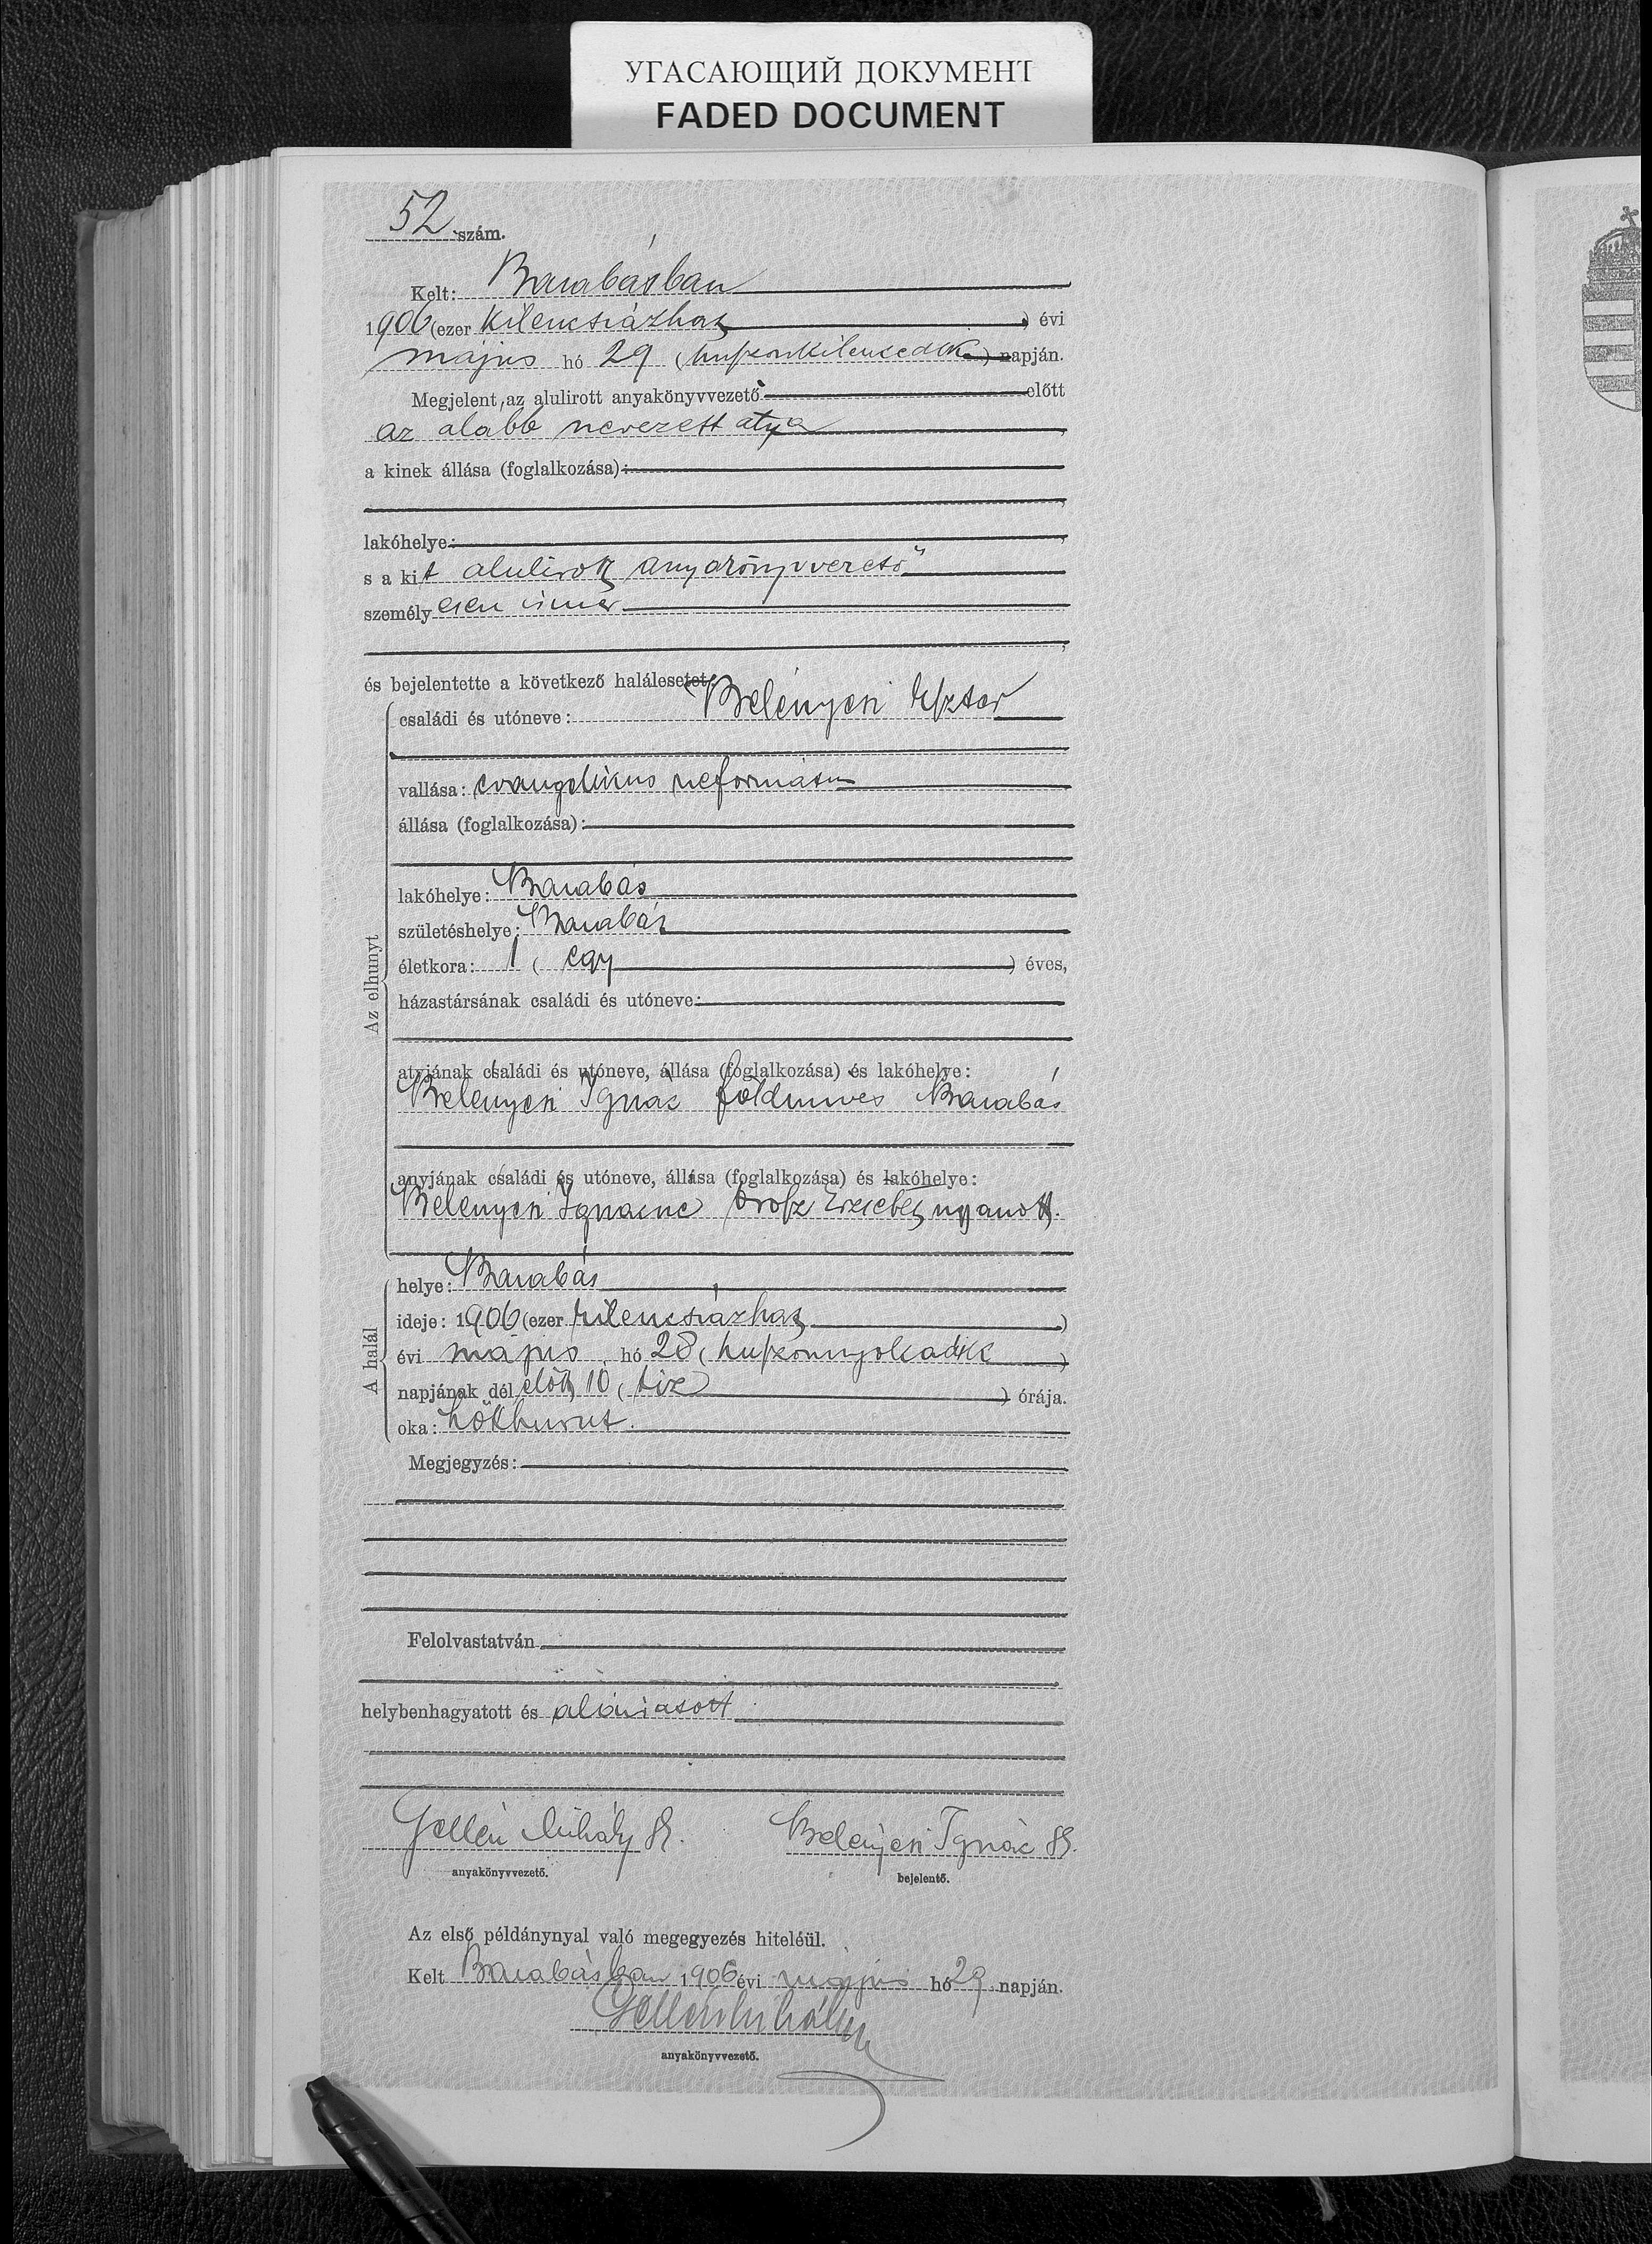 УГАСАЮЩИЙ ДОКУМЕНТ
FADED DOCUMENT
52 szám.
Kelt: Barabásban
1906 (ezer kilencszázhat) évi
május hó 29 (huszonkilencedik) napján.
Megjelent az alulirott anyakönyvvezető előtt
az alább nevezett atya
a kinek állása (foglalkozása):
lakóhelye:
s a kit alulirott anyakönyvvezető
személyesen ismer
és bejelentette a következő halálesetet:
családi és utóneve: Belényesi Eszter
vallása: evangelikus református
állása (foglalkozása):
lakóhelye: Barabás
születéshelye: Barabás
életkora: 1 (egy) éves,
házastársának családi és utóneve:
Az elhunyt
atyjának családi és utóneve, állása (foglalkozása) és lakóhelye:
Belenyesi Ignác földmives Barabás
anyjának családi és utóneve, állása (foglalkozása) és lakóhelye:
Belenyesi Ignácné Orosz Erzsébet ugyanott.
helye: Barabás
ideje: 1906 (ezer kilencszázhat)
évi május hó 28 (huszonnyolcadik)
napjának dél előtt 10 (tiz) órája.
oka: hökhurut.
A halál
Megjegyzés:
Felolvastatván
helybenhagyatott és aláiratott
Gellén Mihály sk. Belényesi Ignác sk.
anyakönyvvezető. bejelentő.
Az első példánynyal való megegyezés hiteléül.
Kelt Barabásban 1906 évi május hó 29 napján.
Gellén Mihály
anyakönyvvezető.